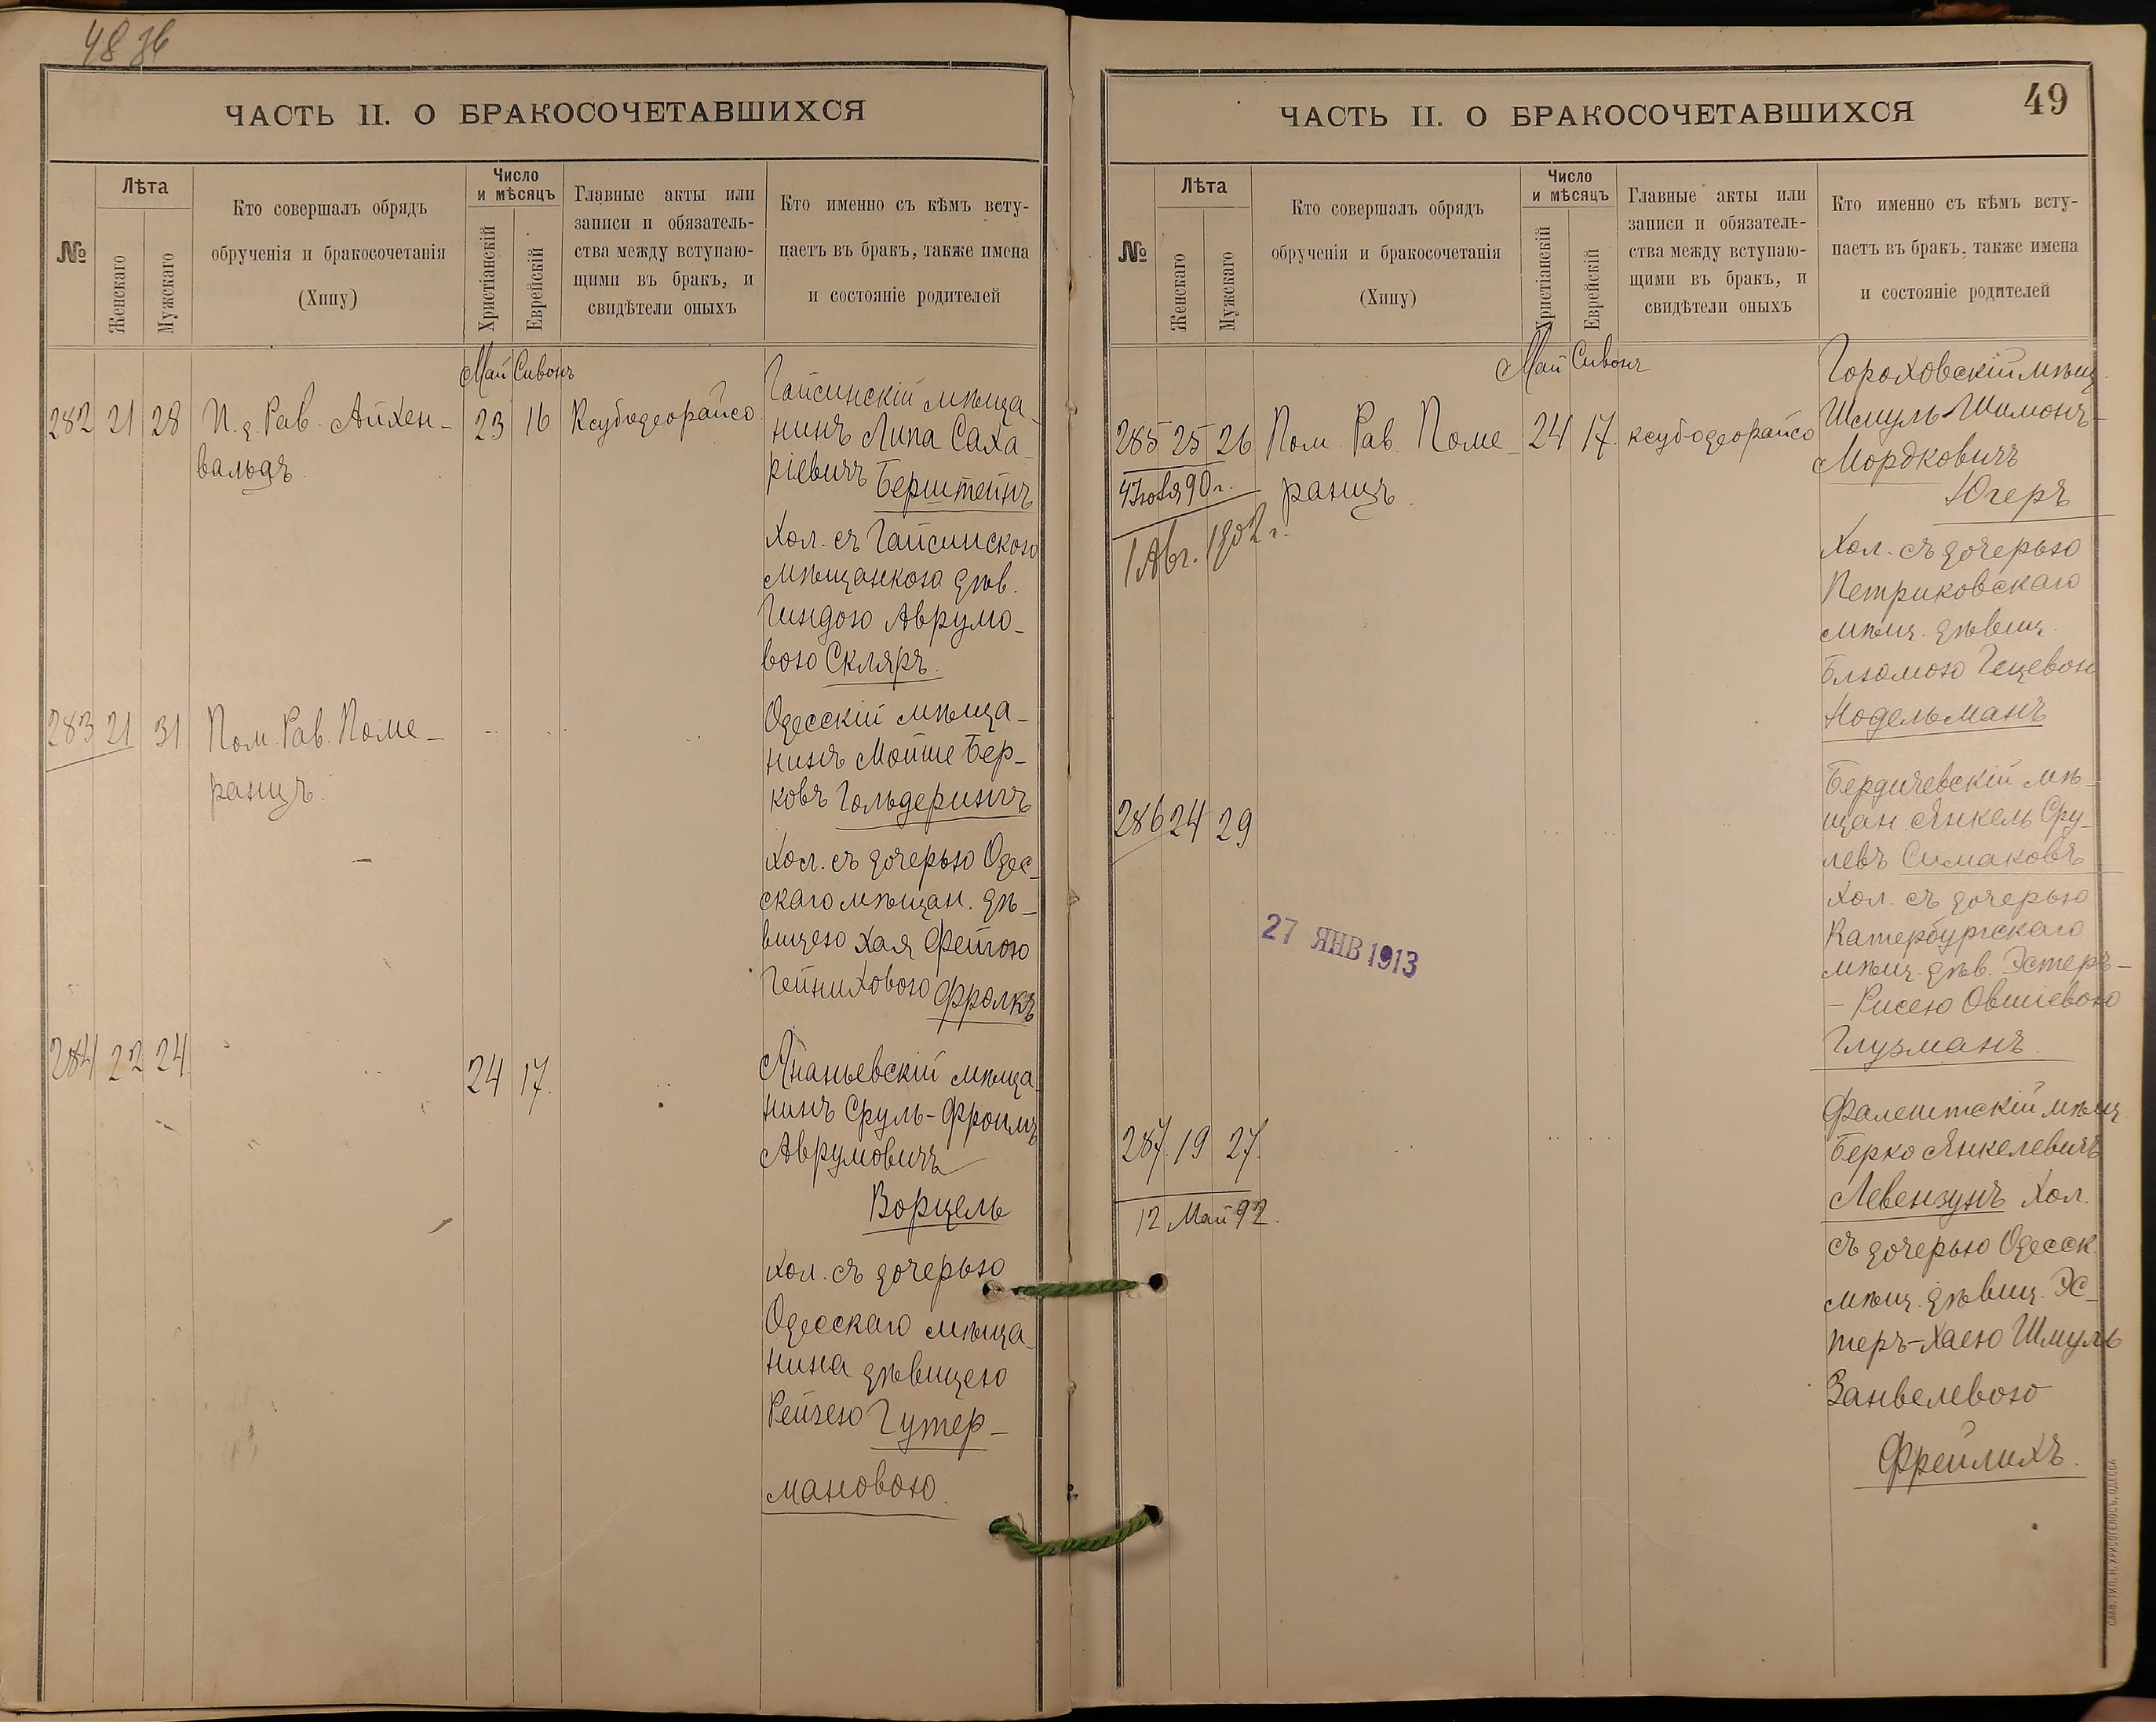 ЧАСТЬ II. О БРАКОСОЧЕТАВШИХСЯ
№
Лѣта
Женскаго
Мужскаго
Кто совершалъ обрядъ
обрученія и бракосочетанія
(Хипу)
Число
и мѣсяцъ
Христіанскій
Еврейскій
Главные акты или
записи и обязатель-
ства между вступаю-
щими въ бракъ, и
свидѣтели оныхъ
Кто именно съ кѣмъ всту-
паетъ въ бракъ, также имена
и состояніе родителей
Май Сивонъ
282 21 28 П. д. Рав. Айхен-
вальдъ.
23 16 Ксубодеорайсо.
Гайсинскій мѣща-
нинъ Липа Саха-
ріевичъ Берштейнъ
Хол. съ Гайсинскою
мѣщанкою дѣв.
Гиндою Аврумо-
вою Скляръ.
283 21 31 Пом. Рав. Поме-
ранцъ.
Одесскій мѣща-
нинъ Мойше Бер-
ковъ Гольдерингъ
Хол. съ дочерью Одес-
скаго мѣщан. дѣ-
вицею Хая Фейгою
Гейниховою Фролкъ
284 22 24 24 17.
Ананьевскій мѣща-
нинъ Сруль-Фроимъ
Аврумовичъ
Ворцель
Хол. съ дочерью
Одесскаго мѣща-
нина дѣвицею
Рейзею Гутер-
мановою.
ЧАСТЬ II. О БРАКОСОЧЕТАВШИХСЯ
49
№
Лѣта
Женскаго
Мужскаго
Кто совершалъ обрядъ
обрученія и бракосочетанія
(Хипу)
Число
и мѣсяцъ
Христіанскій
Еврейскій
Главные акты или
записи и обязатель-
ства между вступаю-
щими въ бракъ, и
свидѣтели оныхъ
Кто именно съ кѣмъ всту-
паетъ въ бракъ, также имена
и состояніе родителей
Май Сивонъ
285 25 26 Пом. Рав. Поме-
ранцъ.
24 17. ксубодеорайсо
90 г.
1 Авг. 1902 г.
Гороховскій мѣщ.
Шмуль-Шимонъ-
Мордковичъ
Югеръ
Хол. съ дочерью
Петриковскаго
мѣщ. дѣвиц.
Блюмою Гецевою
Нодельманъ
286 24 29
Бердичевскій мѣ-
щан. Янкель Сру-
левъ Симаковъ
Хол. съ дочерью
Катербургскаго
мѣщ. дѣв. Эстеръ-
- Рисею Овшіевою
Глузманъ
27 ЯНВ 1913
287. 19 27.
12 Май 92.
Фалештскій мѣщ.
Берко Янкелевичъ
Левензунъ Хол.
съ дочерью Одесск.
мѣщ. дѣвиц. Эс-
теръ-Хаею Шмуль
Занвелевою
Фрейлихъ.